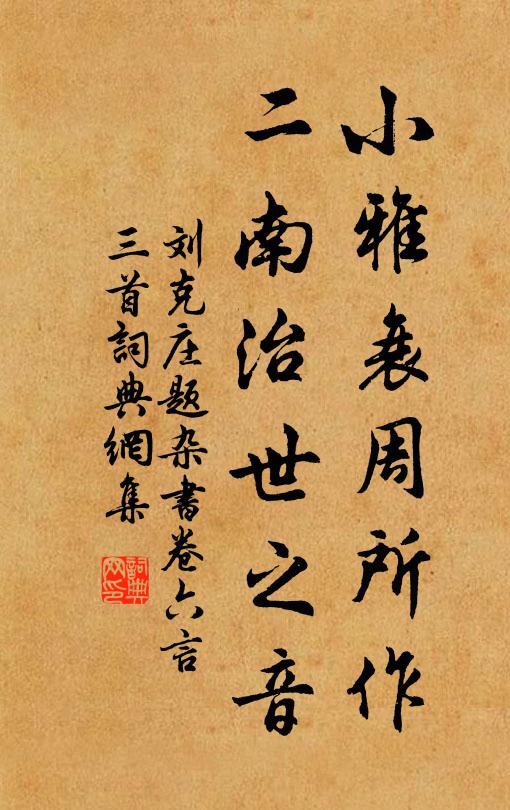 小雅衰周所作
二南治世之音
刘克庄题杂書卷六言
三首詞典網集
詞典
网印